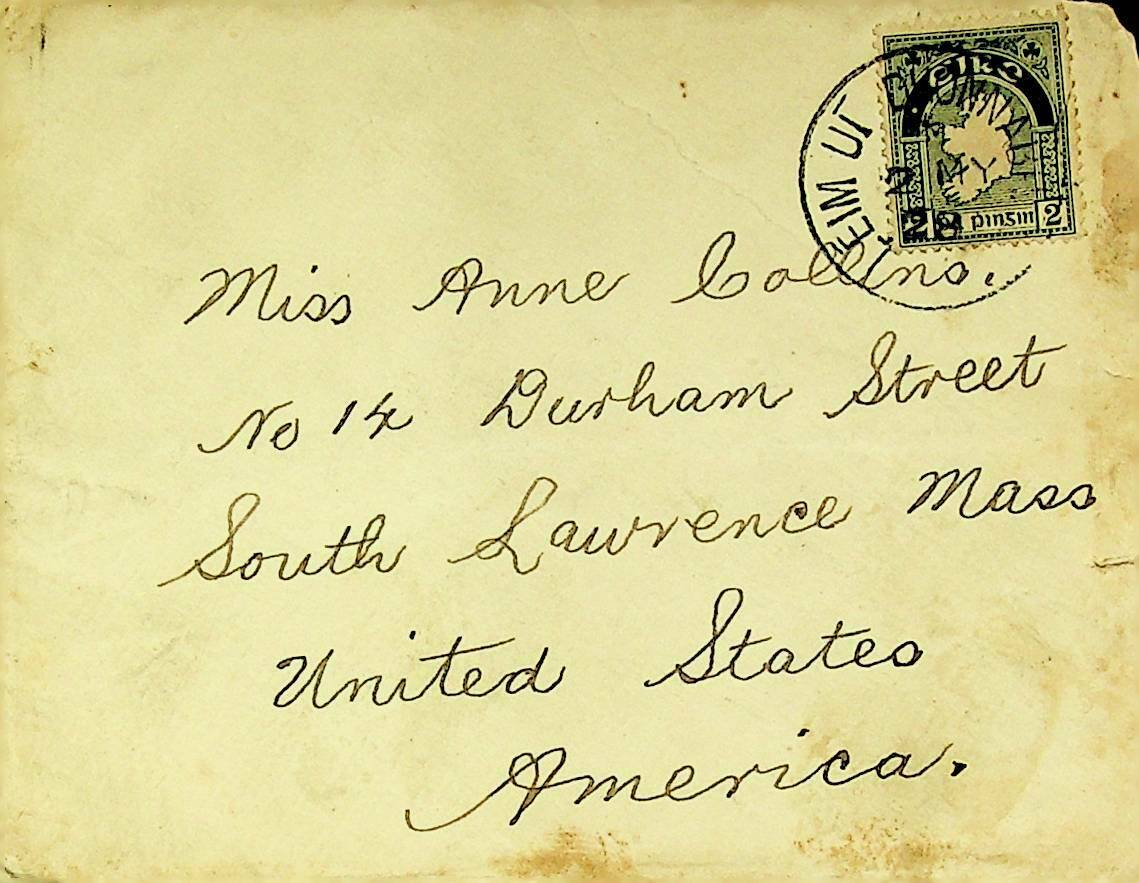 eIRe
2 pinSin 2
LEIM UI D
MY
28
Miss Anne Collins.
No 14 Durham Street
South Lawrence Mass
United States
America.